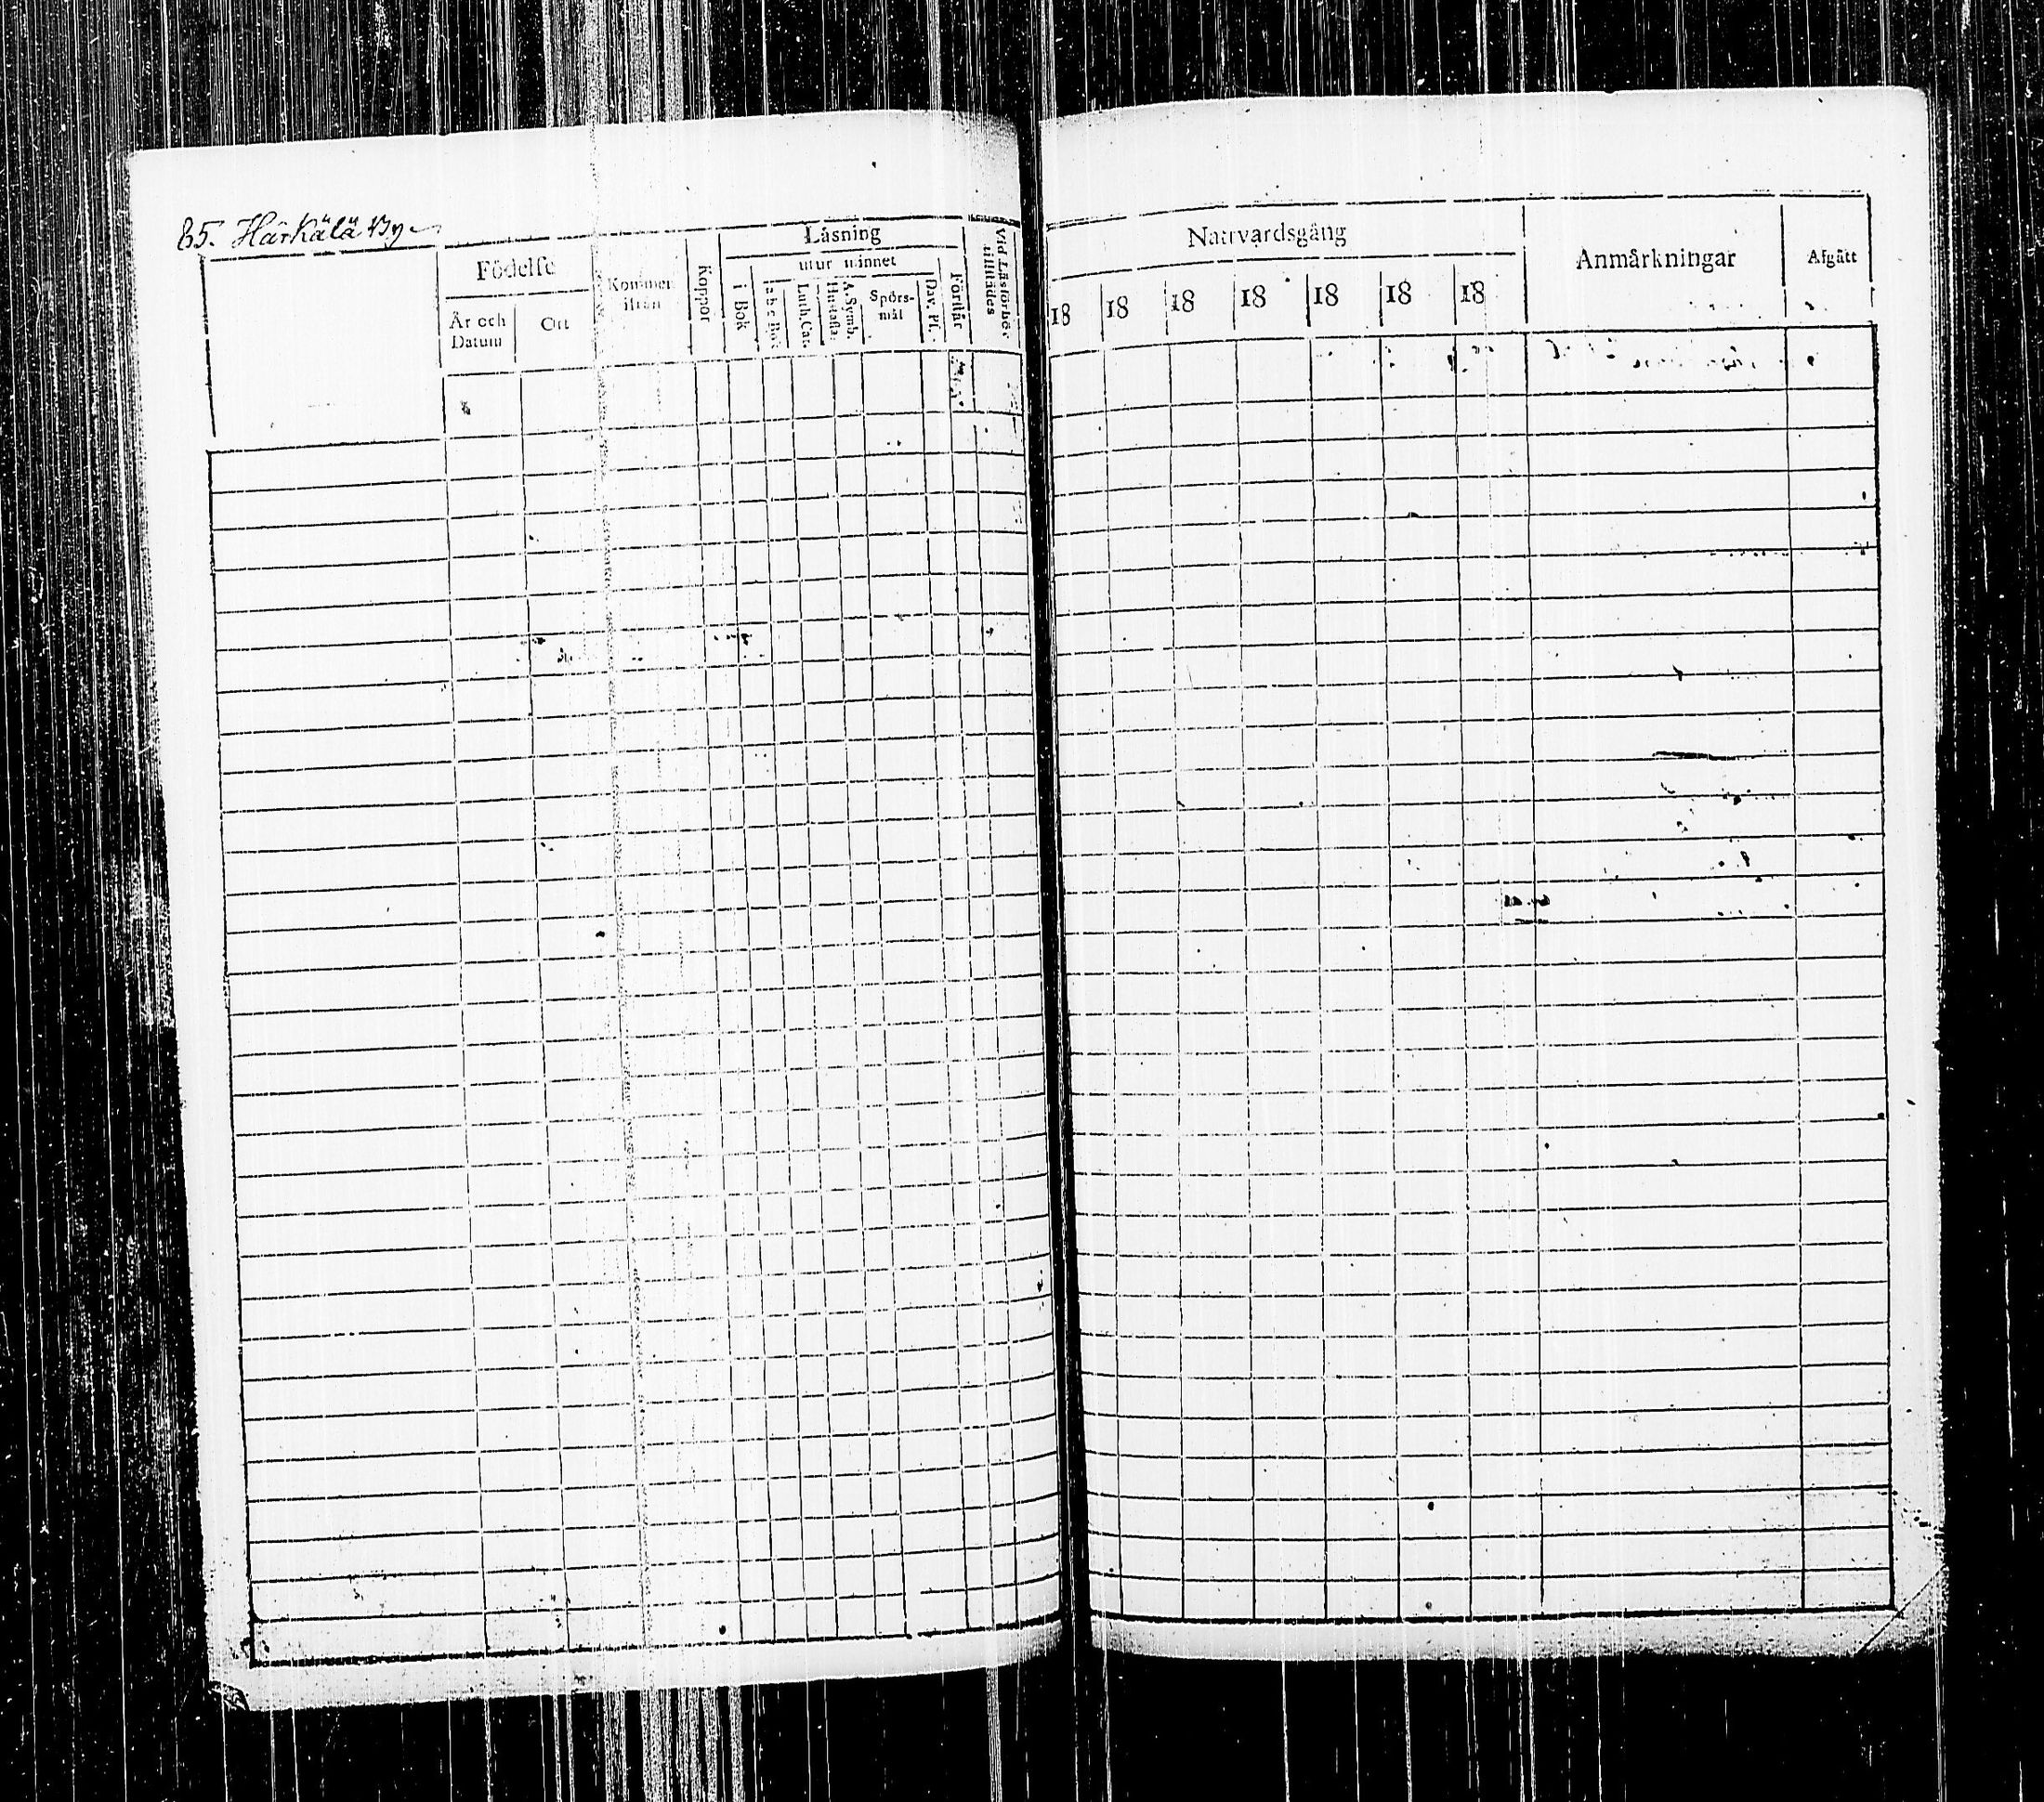 85. Härkälä By
Födelse
Är och Datum
Ort
Kommen ifrån
Koppor
Läsning
i Bok
utur minnet
a b c Bok
Luth. Cat.
Hustafla
A. Symb.
Spörs-
mål
Dav. Ps.
Förstår
Vid Läsförhör
tillstädes
Nattvardsgång
18 18 18 18 18 18 18
Anmärkningar
Afgått